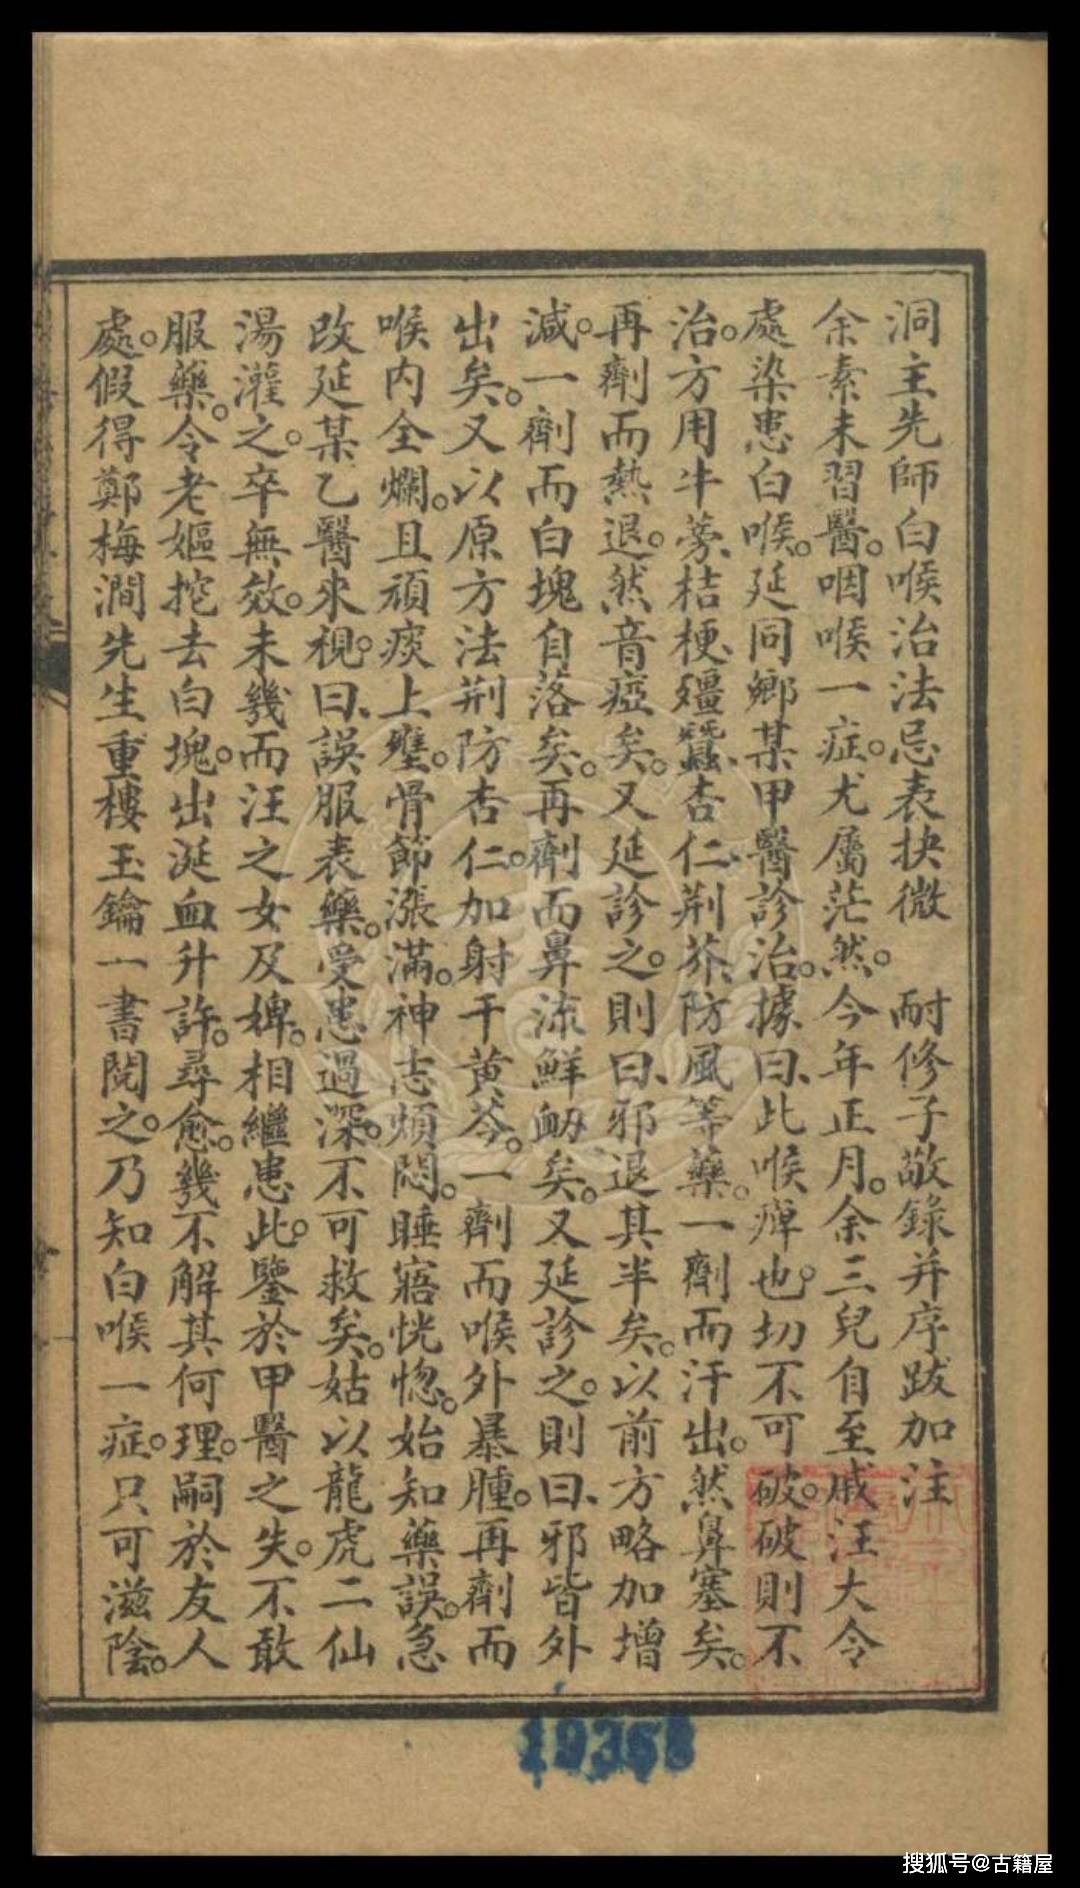 洞主先師白喉治法忌表抉微　耐修子敬錄并序跋加注
余素未習醫。咽喉一症。尤屬茫然。今年正月。余三兒自至戚汪大令
處染患白喉。延同鄉某甲醫診治。據曰、此喉痺也。切不可破。破則不
治。方用牛蒡、桔梗、殭蠶、杏仁、荆芥、防風等藥。一劑而汗出。然鼻塞矣。
再劑而熱退。然音瘂矣。又延診之。則曰、邪退其半矣。以前方略加增
減。一劑而白塊自落矣。再劑而鼻流鮮衂矣。又延診之。則曰、邪皆外
出矣。又以原方法荆防杏仁。加射干黄芩。一劑而喉外暴腫。再劑而
喉内全爛。且頑痰上壅。骨節漲滿。神志煩悶。睡寤恍惚。始知藥誤。急
改延某乙醫來視。曰、誤服表藥。受患過深。不可救矣。姑以龍虎二仙
湯灌之。卒無效。未幾而汪之女及婢。相繼患此。鑒於甲醫之失。不敢
服藥。令老嫗挖去白塊。出涎血升許。尋愈。幾不解其何理。嗣於友人
處。假得鄭梅澗先生重樓玉鑰一書閱之。乃知白喉一症。只可滋陰。
19368
搜狐号@古籍屋